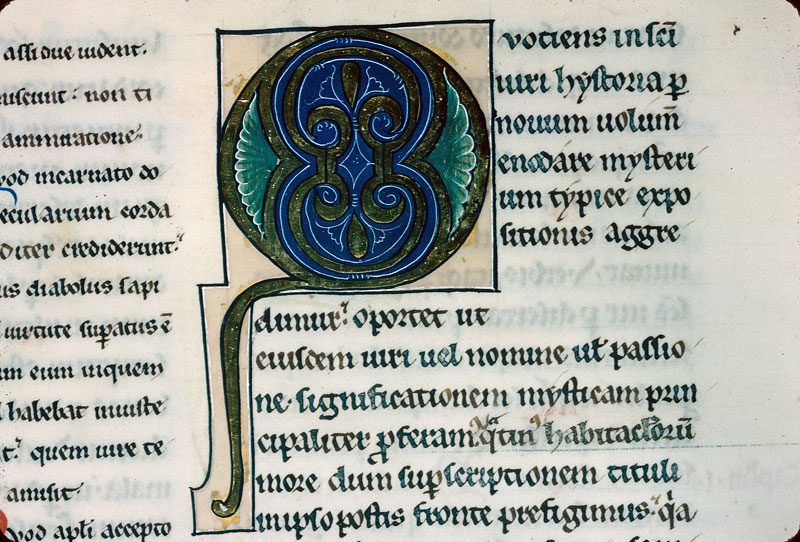 assidue uident.
uiscunt: non ti
ammiratione.
yod incarnato do
ecularium corda
diter crediderunt.
us diabolus sapi
uirtute supatus ē
m eum inquem
habebat iniuste
quem iure te
amisit.
yod apli accepto
Quotiens in sci
uiri hystoria p
nouum uolum̄
enodare mysteri
um typice expo
sitionis aggre
dimur: oportet ut
eiusdem uiri uel nomine ut passio
ne significationem mysticam prin
cipaliter pferam: qtin habitaclorū
more dum supscriptionem tituli
in ipso postis fronte prefigimus: qa